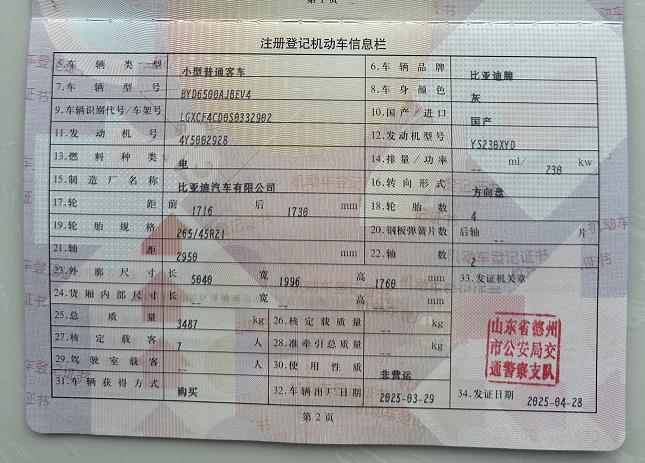 注册登记机动车信息栏
5.车辆类型 小型普通客车 6.车辆品牌 比亚迪牌
7.车辆型号 BYD6500AJBEV4 8.车身颜色 灰
9.车辆识别代号/车架号 LGXCF4CD0S0332902 10.国产/进口 国产
11.发动机号 4Y5002928 12.发动机型号 YS230XYD
13.燃料种类 电 14.排量/功率 -- ml/ 230 kw
15.制造厂名称 比亚迪汽车有限公司 16.转向形式 方向盘
17.轮距 前 1716 后 1730 mm 18.轮胎数 4
19.轮胎规格 265/45R21 20.钢板弹簧片数 后轴 -- 片
21.轴距 2950 mm 22.轴数 2
23.外廓尺寸 长 5040 宽 1996 高 1760 mm 33.发证机关章
24.货厢内部尺寸 长 -- 宽 -- 高 -- mm
25.总质量 3487 kg 26.核定载质量 -- kg
27.核定载客 7 人 28.准牵引总质量 -- kg
29.驾驶室载客 -- 人 30.使用性质 非营运
31.车辆获得方式 购买 32.车辆出厂日期 2025-03-29 34.发证日期 2025-04-28
山东省德州
市公安局交
通警察支队
第2页